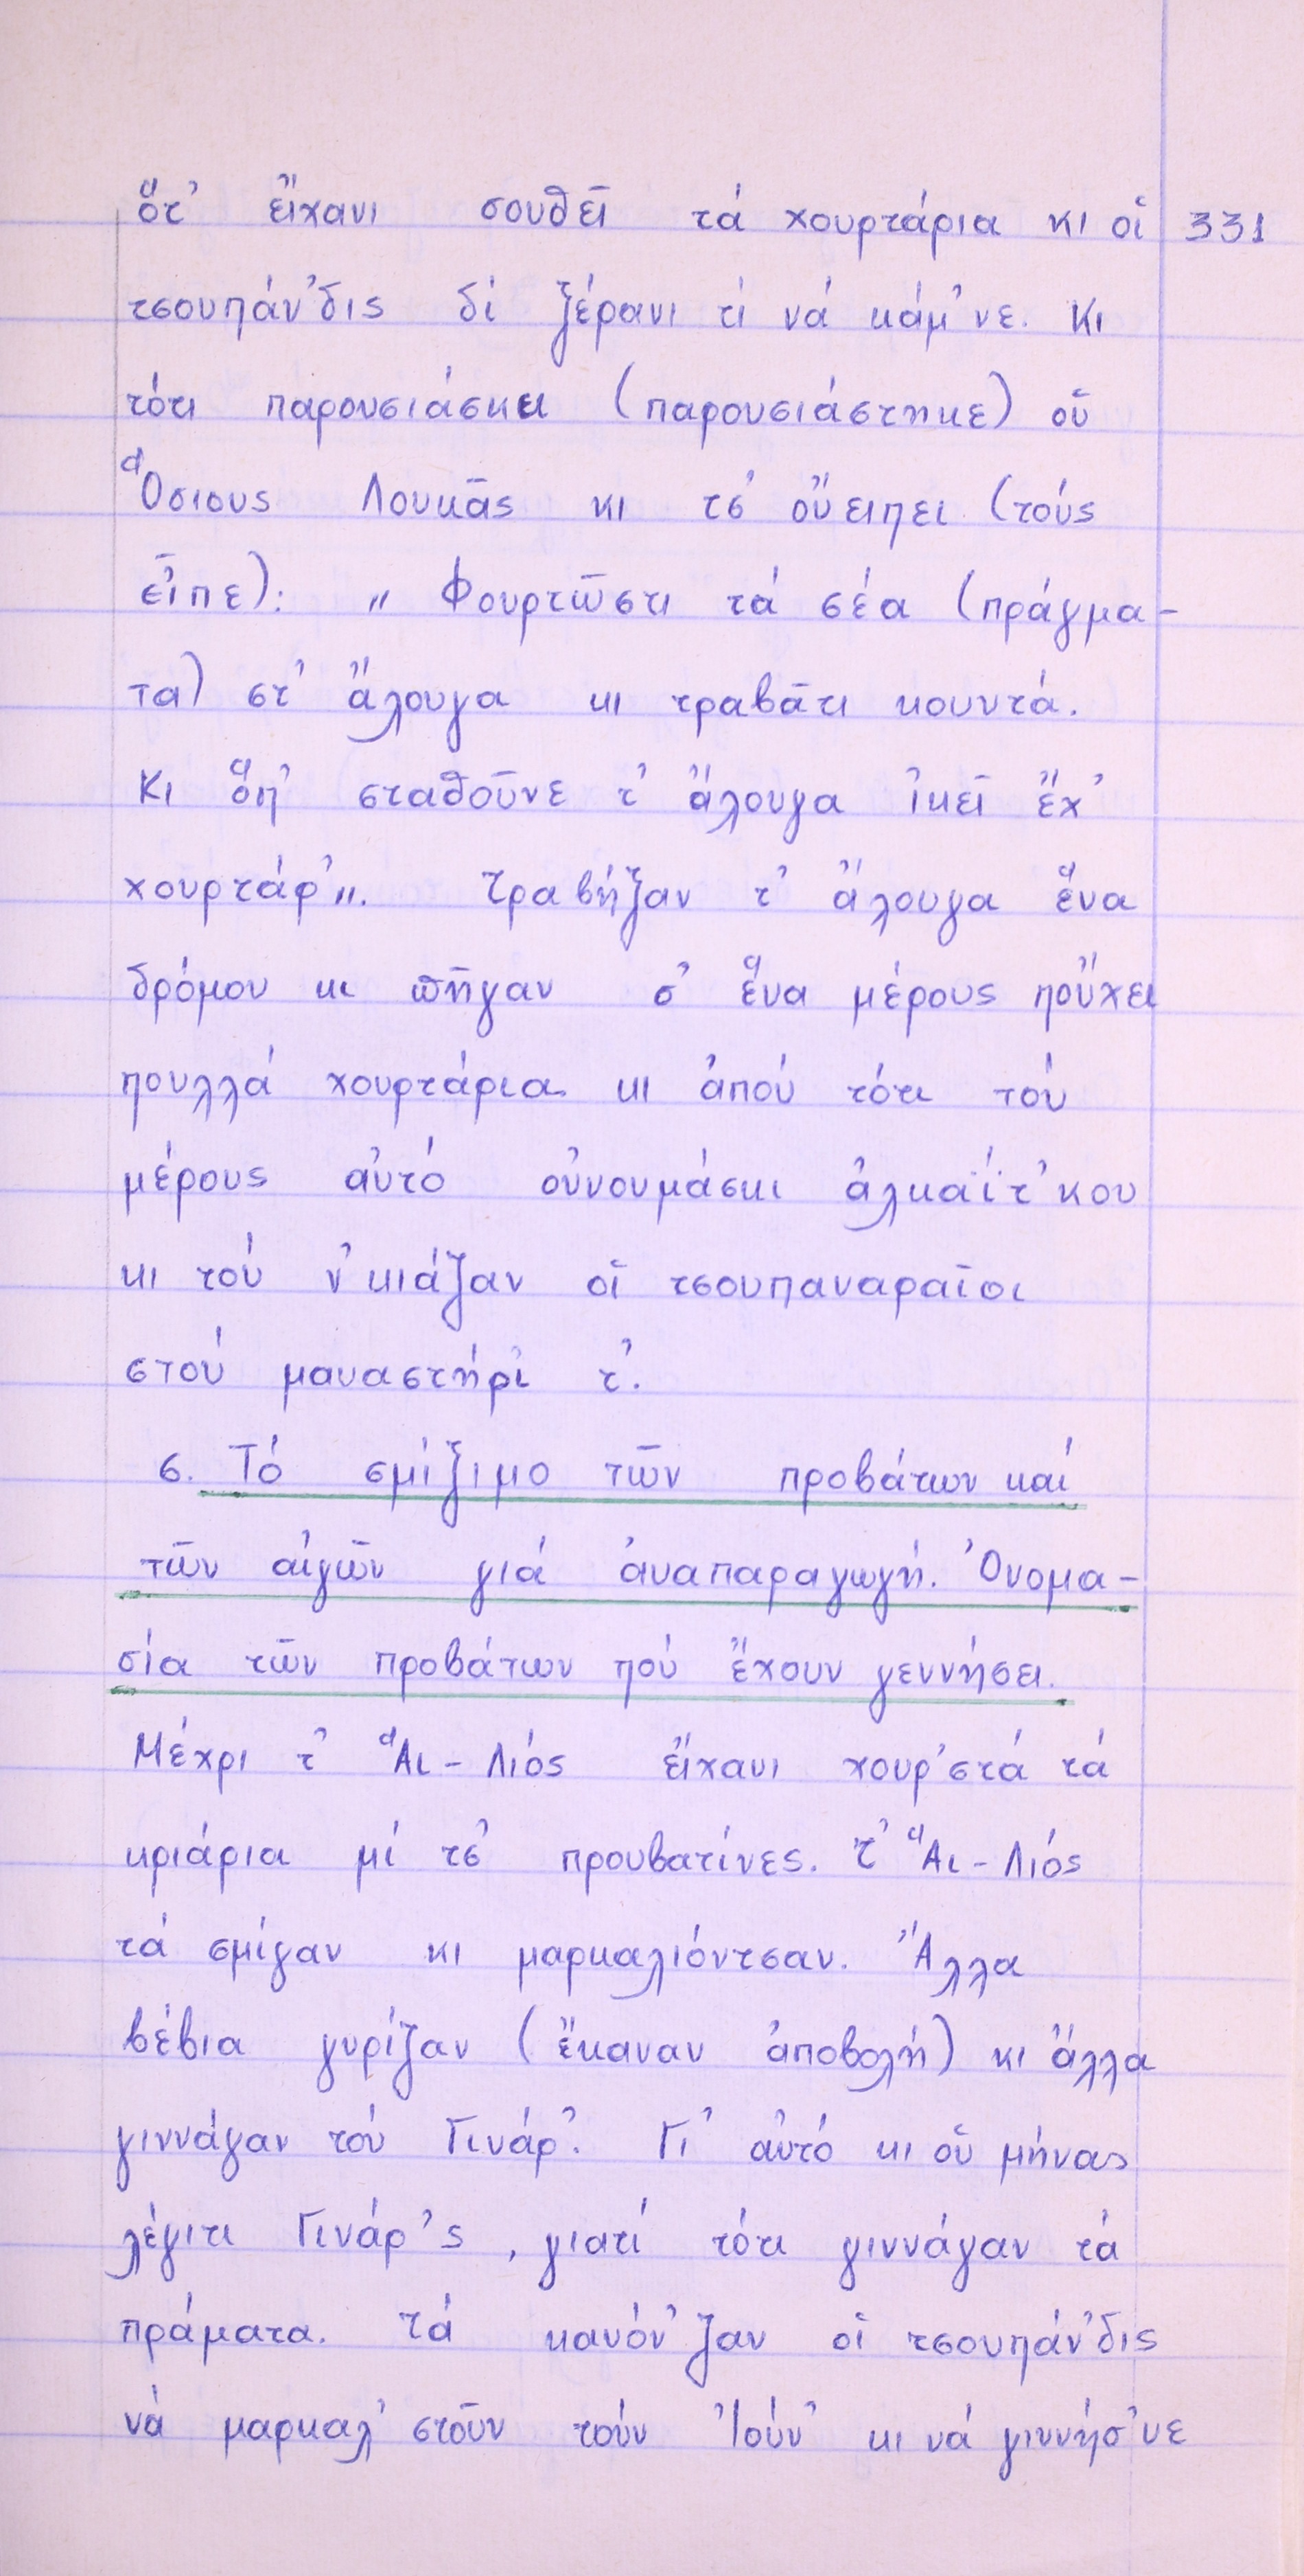 ὅτ' εἴχανι σουθεῖ τά χουρτάρια κι οἱ 331
τσουπάν'δις δί ξέρανι τί νά κάμ'νε. Κι
τότι παρουσιάσκει (παρουσιάστηκε) οὑ
Ὅσιους Λουκᾶς κι τσ' οὔειπει (τούς
εἶπε): „ Φουρτῶστι τά σέα (πράγμα-
τα) στ' ἄλουγα κι τραβᾶτι κουντά.
Κι ὅπ' σταθοῦνε τ' ἄλουγα ἰκεῖ ἔχ'
χουρτάρ'". Τραβήξαν τ' ἄλουγα ἕνα
δρόμου κι πῆγαν σ' ἕνα μέρους ποὔχει
πουλλά χουρτάρια κι ἀπού τότι τού
μέρους αὐτό οὐνουμάσκι ἀλκαΐτ'κου
κι τού ν'κιάζαν οἱ τσουπαναραῖοι
στού μαναστήρι τ'.
6. Τό σμίξιμο τῶν προβάτων καί
τῶν αἰγῶν γιά ἀναπαραγωγή. Ὀνομα-
σία τῶν προβάτων πού ἔχουν γεννήσει.
Μέχρι τ' Ἅι-Λιός εἴχανι χουρ'στά τά
κριάρια μί τσ' προυβατίνες. Τ' Ἅι-Λιός
τά σμίγαν κι μαρκαλιόντσαν. Ἄλλα
βέβια γυρίζαν (ἔκαναν ἀποβολή) κι ἄλλα
γιννάγαν τού Γινάρ'. Γι' αὐτό κι οὑ μήνας
λέγιτι Γινάρ'ς, γιατί τότι γιννάγαν τά
πράματα. Τά κανόν'ζαν οἱ τσουπάν'δις
νά μαρκαλ'στοῦν τούν Ἰούν' κι νά γιννήσ'νε